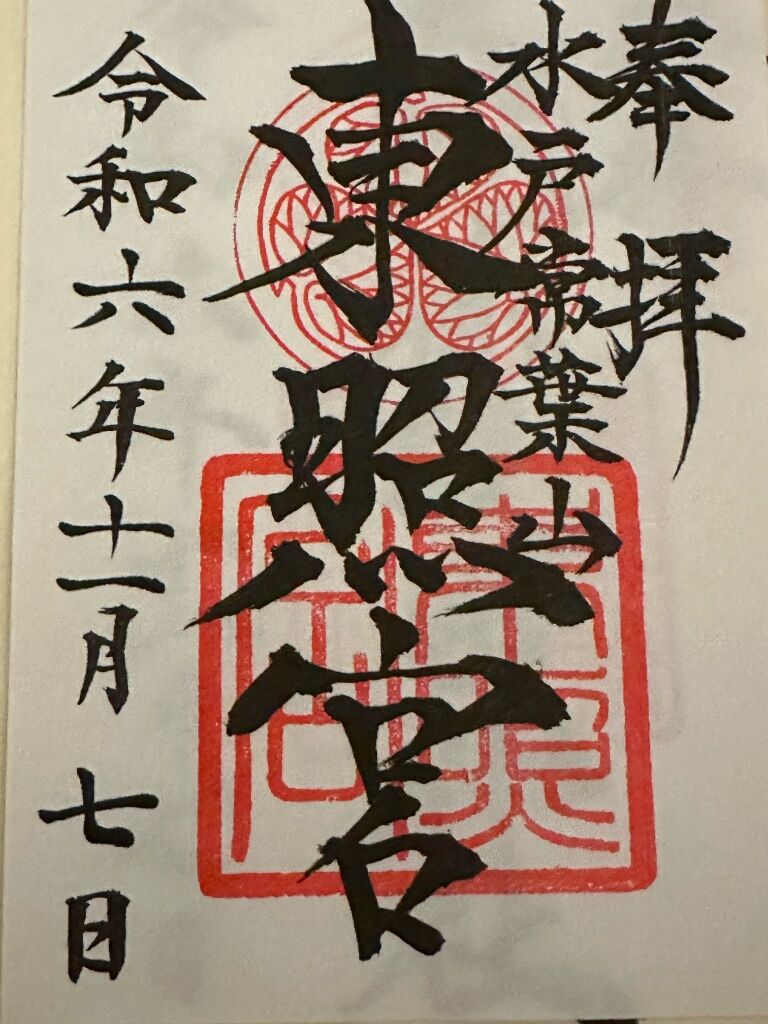 奉拝
水戸常葉山
東照宮
令和六年十一月七日